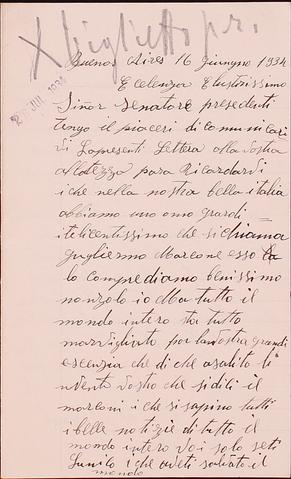 X biglietto pr.
Buenos Aires 16 giungno 1934
Ecelenza Elustrissimo
Sinor Senatore presedenti
tengo il piaceri di comunicari
Li Lapresenti Lettera alla Vostra
Altezza para Ricordardi
iche nella nostra bella italia
abbiamo uno omo grandi
itelicentissimo che sichiama
gugliermo Marcone esso la
lo comprediamo benissimo
nonzolo io Ma tutto il
mondo intero sta tutto
marvigliato por la vostra grandi
escenzia che di che
vento Vosho che sidili il
marconi iche si sapino tutti
ibelle notizie di tutto il
mondo intero Voi solo seti
Lunico iche aveti salvato il
mondo